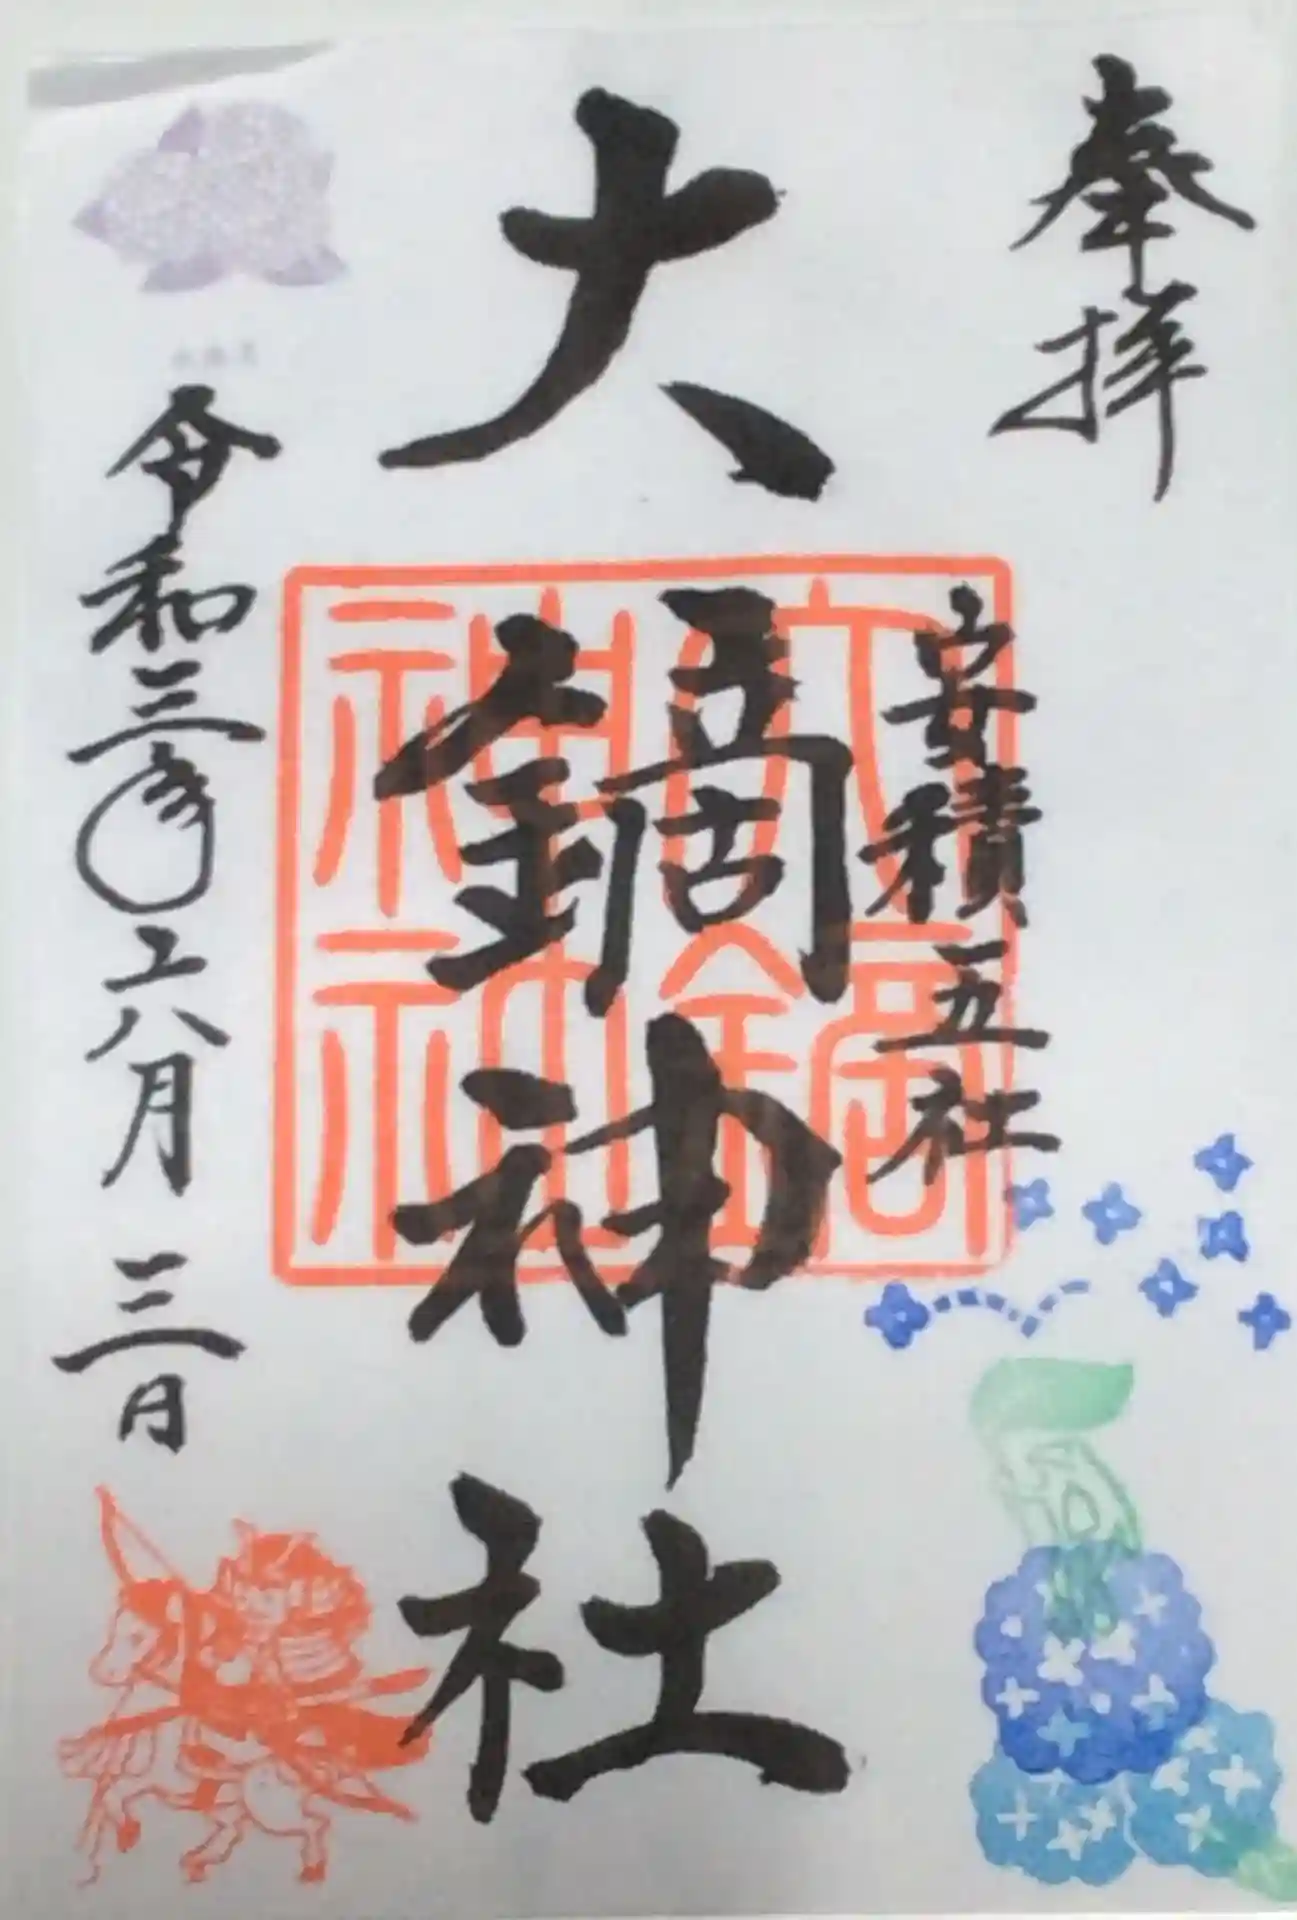 奉拝
安積五社
大鏑神社
大鏑神社
令和三年六月三日